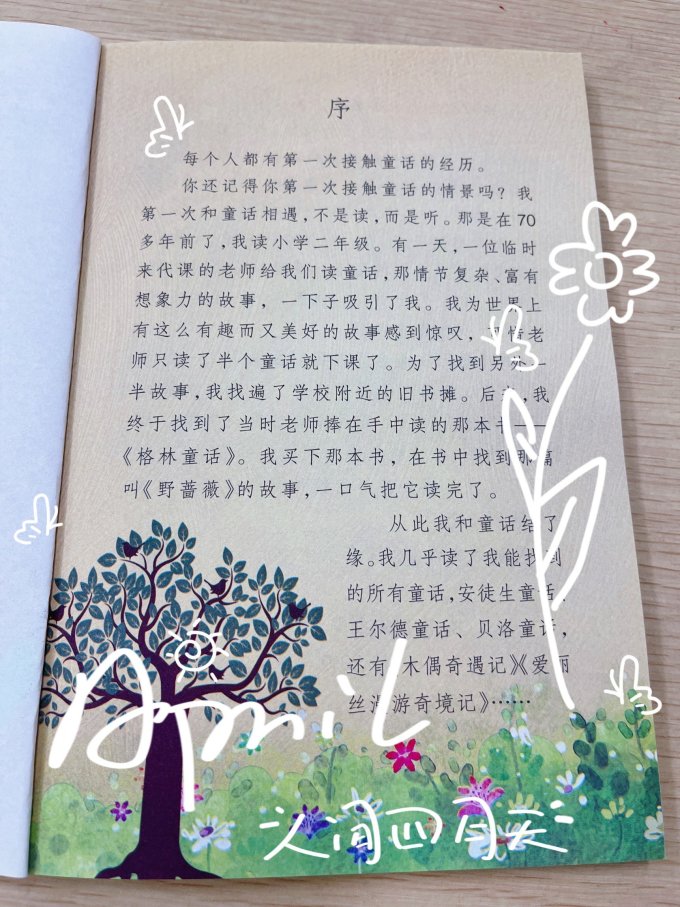 序
每个人都有第一次接触童话的经历。
你还记得你第一次接触童话的情景吗？我
第一次和童话相遇，不是读，而是听。那是在70
多年前了，我读小学二年级。有一天，一位临时
来代课的老师给我们读童话，那情节复杂、富有
想象力的故事，一下子吸引了我。我为世界上
有这么有趣而又美好的故事感到惊叹，可惜老
师只读了半个童话就下课了。为了找到另外一
半故事，我找遍了学校附近的旧书摊。后来，我
终于找到了当时老师捧在手中读的那本书——
《格林童话》。我买下那本书，在书中找到那篇
叫《野蔷薇》的故事，一口气把它读完了。
从此我和童话结了
缘。我几乎读了我能找到
的所有童话，安徒生童话、
王尔德童话、贝洛童话，
还有《木偶奇遇记》《爱丽
丝漫游奇境记》……
April
人间四月天